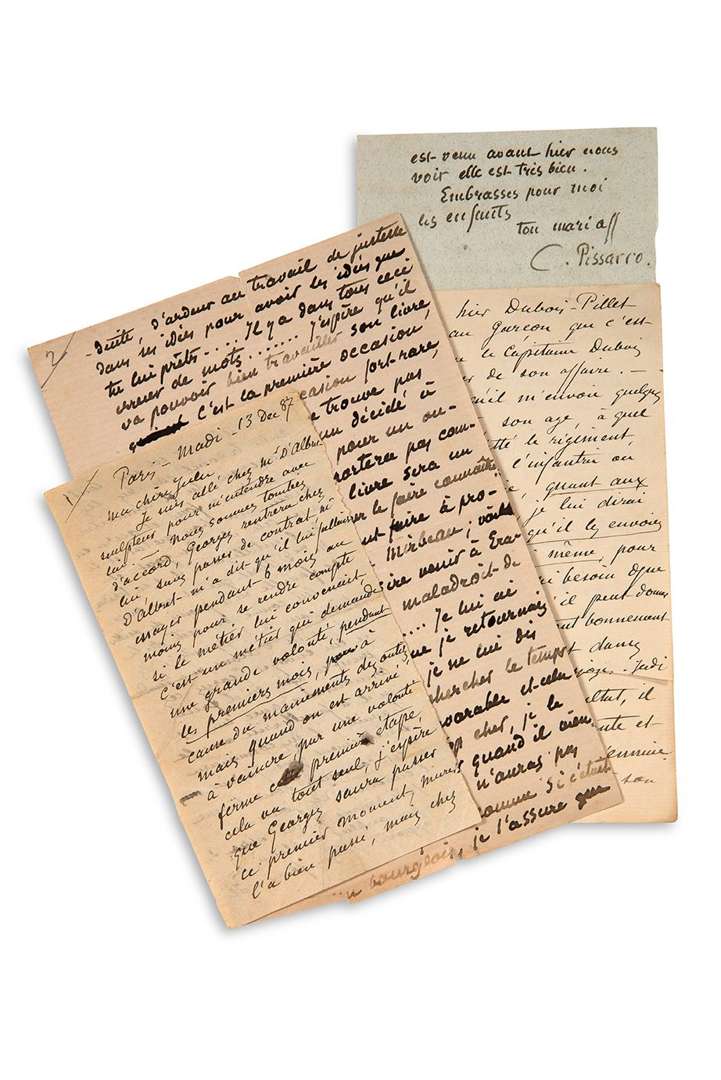 est venu avant hier nous
voir elle est très bien.
Embrasses pour moi
les enfants
ton mari aff
C. Pissarro.
hier Dubois-Pillet
au Garçon que c'est-
le Capitaine Dubois
de son affaire. —
qu'il m'envoie quelques
son age, à quel
le régiment,
l'infantrie ou
quant aux
je lui dirai
qu'il les envoies
même, pour
besoin que
il peut donner
bonnement
dans
Jeudi
il
et
son
2
duite, d'ardeur au travail de justesse
dans ses idées pour avoir les idées que
tu lui prêts.... Il y a dans tous ceci
erreur de mots....... J'espère qu'il
va pouvoir bien travailler son livre
C'est la première occasion,
occasion fort rare
trouve pas,
un décidé à
pour un ou-
portera pas com-
livre sera un
le faire connaitre
faire à pro-
Mirbeau, voilà
venir à Era-
maladroit de
.... Je lui ai
que je retournais
je ne lui dis
chercher le temps
et cela
cher, je le
quand il vien
n'auras pas
comme si c'était
bourgeois, je t'assure que
1
Paris — Mardi — 13 Dec 87
Ma chère Julie,
Je suis allé chez Mr D'Albert
sculpteur pour m'entendre avec
lui — Nous sommes tombés
d'accord, Georges rentrera chez
lui, sans passer de contrat ni
D'albert m'a dit qu'il lui fallait
essayer pendant 6 mois au
moins pour se rendre compte
si le métier lui convenait
C'est un métier qui demande
une grande volonté, pendant
les premiers mois, par à
cause du maniements des outils
mais quand on est arrivé
à vaincre par une volonté
ferme cette première étape,
cela va tout seul, j'espère
que Georges saura passer
ce premier moment,
l'a bien passé, mais chez